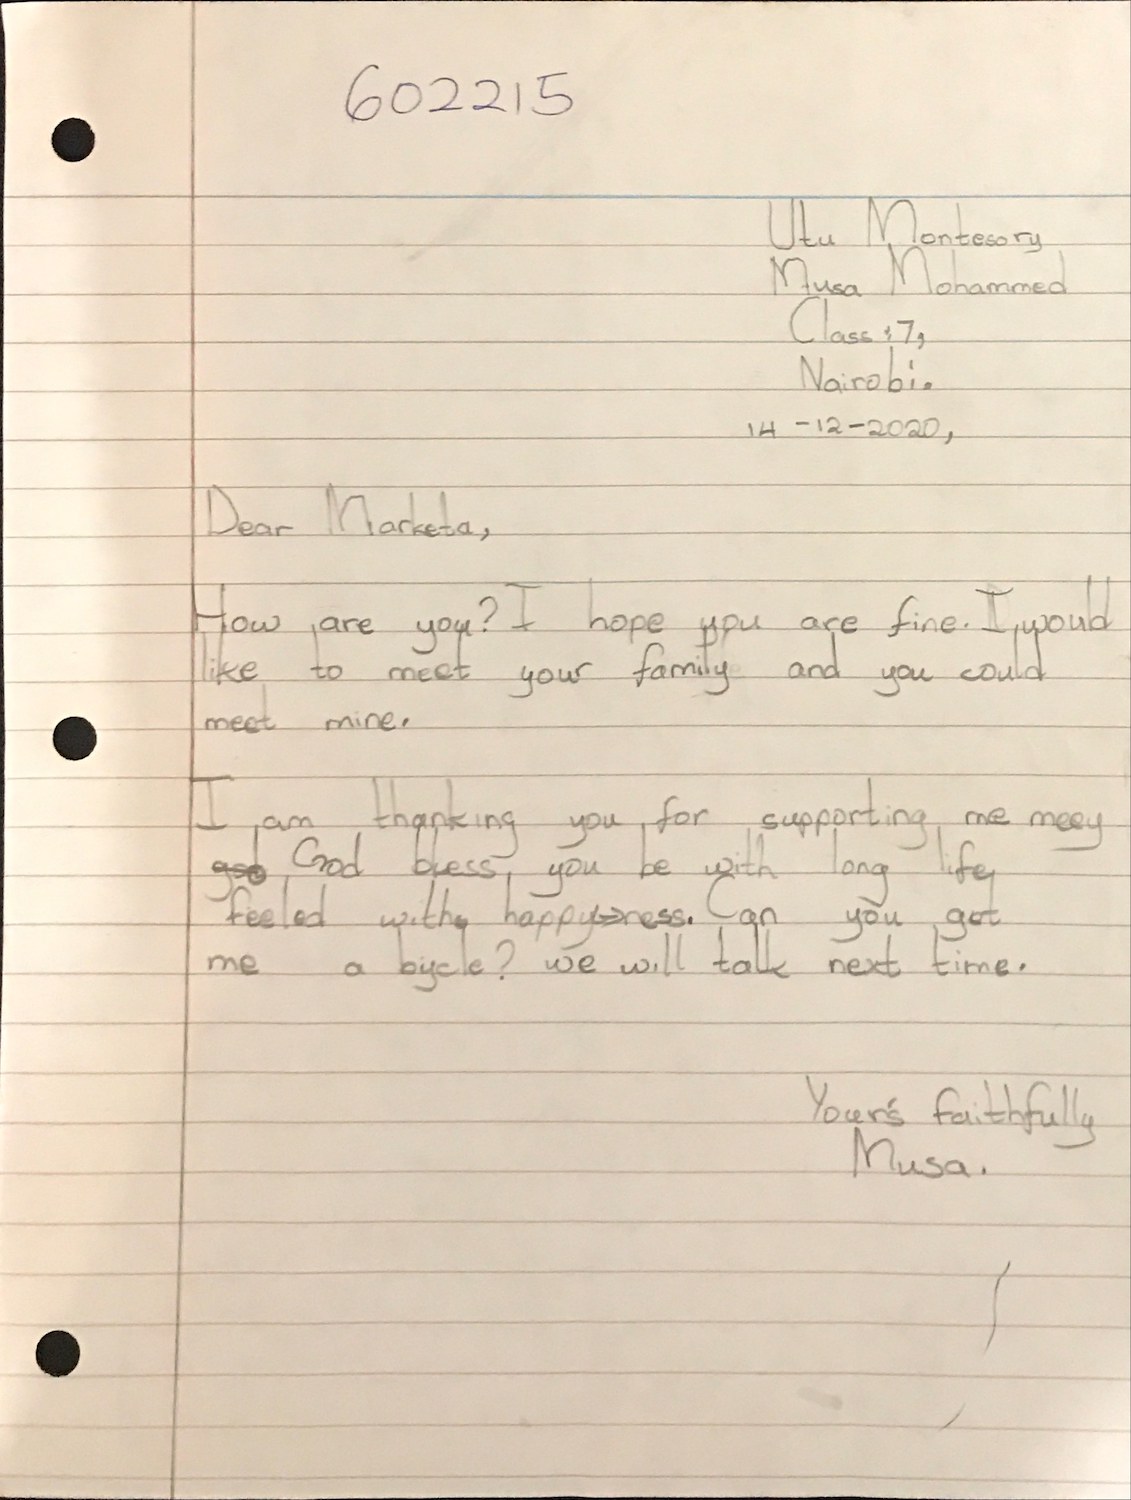 602215
Utu Montesory
Musa Mohammed
Class : 7,
Nairobi.
14 -12-2020,
Dear Marketa,
How are you? I hope you are fine. I would
like to meet your family and you could
meet mine.
I am thanking you for supporting me meey
God bless you be with long life
feeled with happyness. Can you get
me a bycle? we will talk next time.
Your's faithfully
Musa.